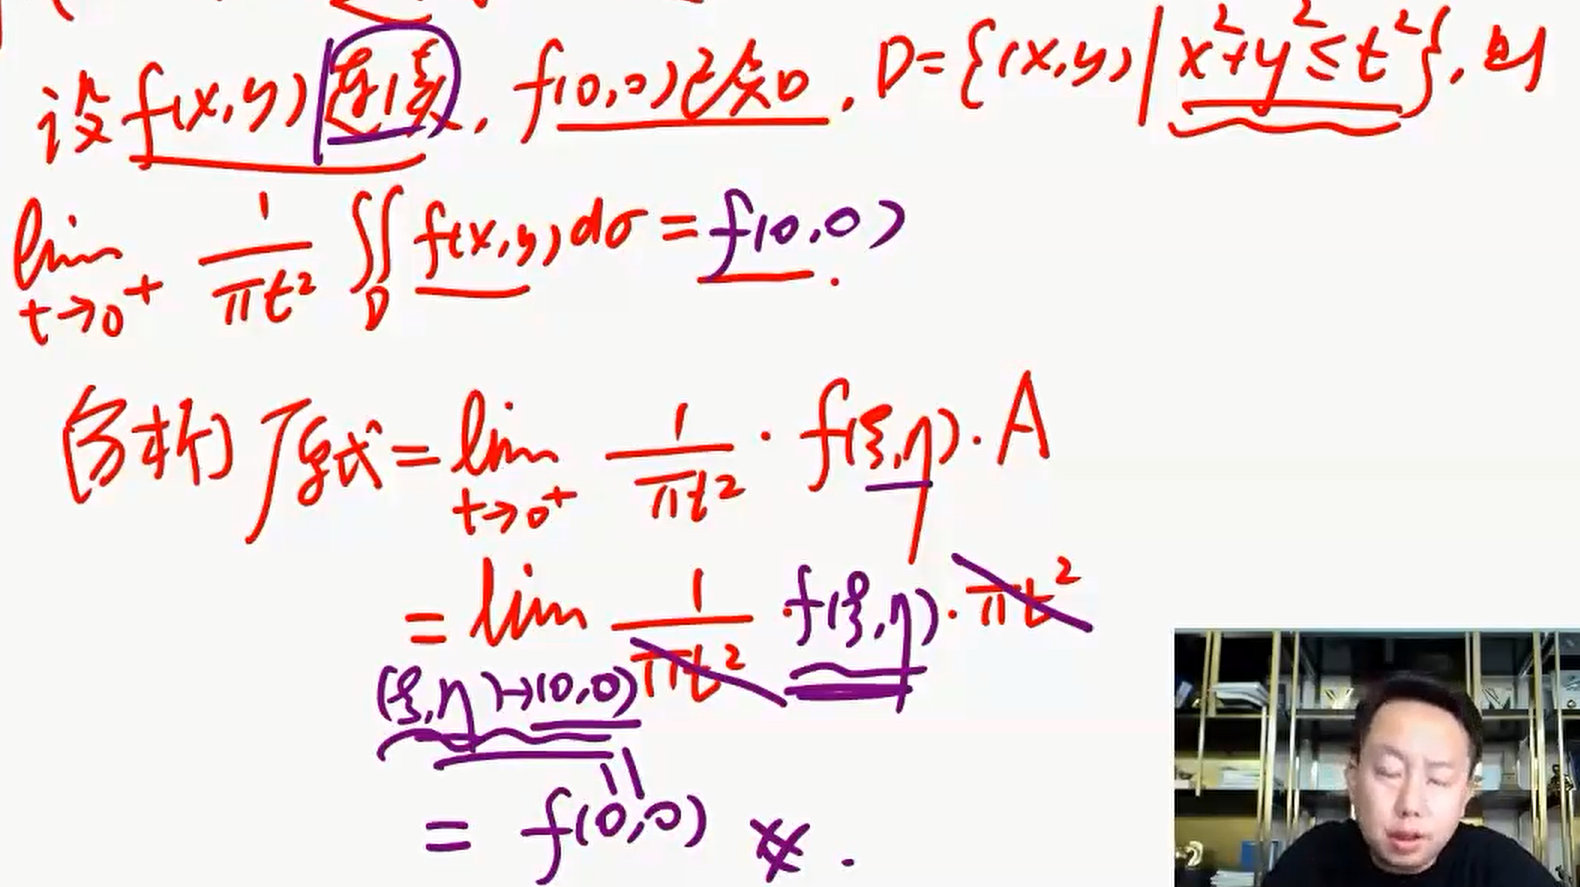 设f(x,y)连续, f(0,0)已知, D={(x,y)|x²+y²≤t²}, 则
lim t→0⁺ 1/πt² ∬D f(x,y)dσ=f(0,0).
[分析] 原式=lim t→0⁺ 1/πt² · f(ξ,η)·A
=lim (ξ,η)→(0,0) 1/πt² ·f(ξ,η)·πt²
= f(0,0) ※.